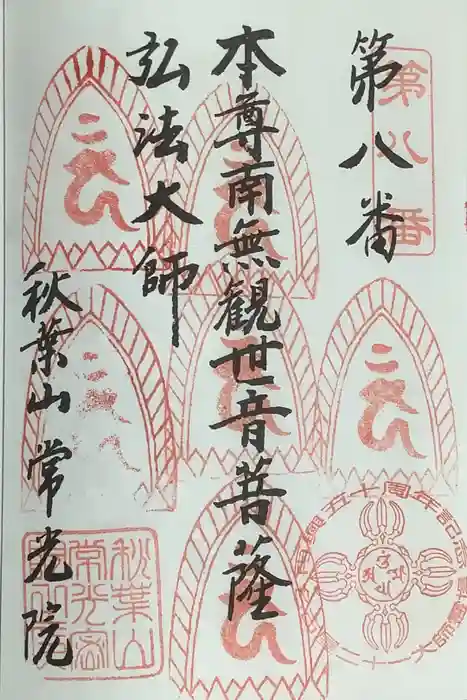 第八番
第八番
本尊南無観世音菩薩
弘法大師
秋葉山常光院
秋葉山
常光密
十周年記念
二十一大師